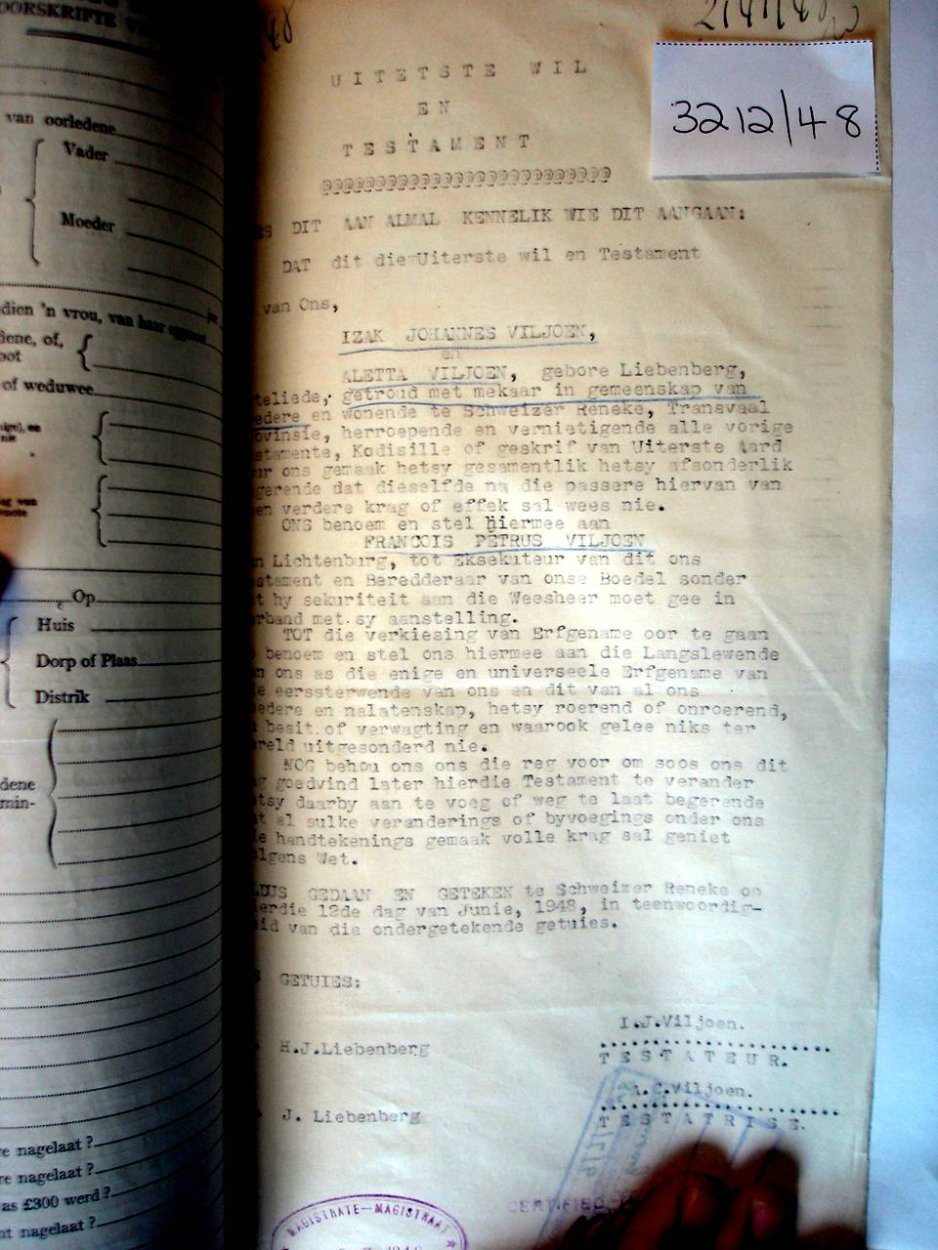 OORSKRIFTE V
van oorledene
Vader
Moeder
dien 'n vrou, van haar
iene, of,
oot
of weduwee
Op
Huis
Dorp of Plaas
Distrik
dene
min-
re nagelaat ?
re nagelaat ?
as £300 werd ?
nt nagelaat ?
3212/48
UITETSTE WIL
EN
TESTAMENT
@@@@@@@@@@@@@@@@@@@@@@@@@@
S DIT AAN ALMAL KENNELIK WIE DIT AANGAAN:
DAT dit die Uiterste wil en Testament
van Ons,
IZAK JOHANNES VILJOEN,
en
ALETTA VILJOEN, gebore Liebenberg,
teliede, getroud met mekaar in gemeenskap van
edere en wonende te Schweizer Reneke, Transvaal
ovinsie, herroepende en vernietigende alle vorige
stamente, Kodisille of geskrif van Uiterste Aard
ur ons gemaak hetsy gesamentlik hetsy afsonderlik
gerende dat dieselfde na die passere hiervan van
en verdere krag of effek sal wees nie.
ONS benoem en stel hiermee aan
FRANCOIS PETRUS VILJOEN
n Lichtenburg, tot Eksekuteur van dit ons
stament en Beredderaar van onse Boedel sonder
t hy sekuriteit aan die Weesheer moet gee in
rband met sy aanstelling.
TOT die verkiesing van Erfgename oor te gaan
benoem en stel ons hiermee aan die Langslewende
n ons as die enige en universeele Erfgename van
e eerssterwende van ons en dit van al ons
edere en nalatenskap, hetsy roerend of onroerend,
besit of verwagting en waarook gelee niks ter
reld uitgesonderd nie.
NOG behou ons ons die reg voor om soos ons dit
g goedvind later hierdie Testament te verander
tsy daarby aan te voeg of weg te laat begerende
t al sulke veranderings of byvoegings onder ons
e handtekenings gemaak volle krag sal geniet
lgens Wet.
LDUS GEDAAN EN GETEKEN te Schweizer Reneke op
ierdie 12de dag van Junie, 1948, in teenwoordig-
eid van die ondergetekende getuies.
S GETUIES:
I.J.Viljoen.
H.J.Liebenberg
TESTATEUR.
A.C.Viljoen.
J. Liebenberg
TESTATRISE.
CERTIFIED
MAGISTRATE-MAGISTRAAT